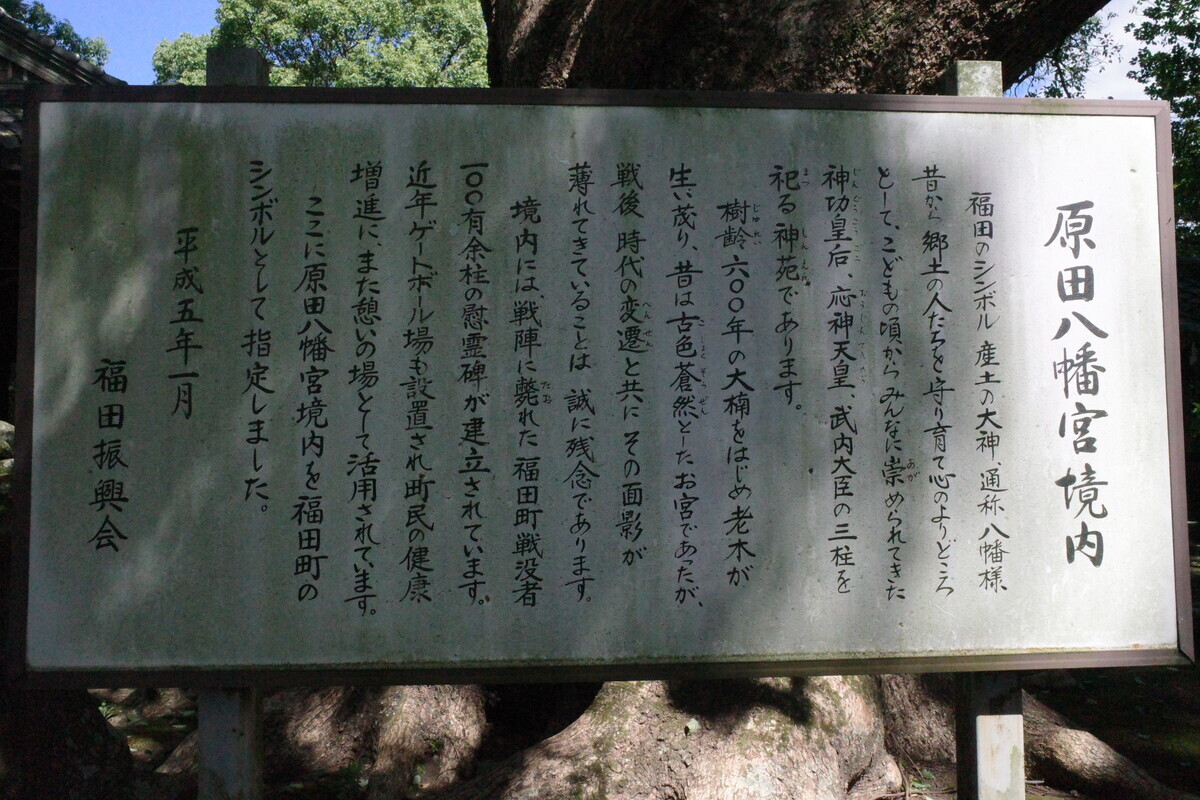 原田八幡宮境内
福田のシンボル 産土の大神、通称 八幡様、
昔から 郷土の人たちを 守り育て心のよりどころ
として、こどもの頃から みんなに 崇められてきた
神功皇后、応神天皇、武内大臣の三柱を
祀る 神苑であります。
樹齢 六〇〇年の大楠をはじめ 老木が
生い茂り、昔は古色蒼然としたお宮であったが、
戦後 時代の変遷と共に その面影が
薄れてきていることは 誠に残念であります。
境内には 戦陣に斃れた 福田町戦没者
一〇〇有余柱の慰霊碑が 建立されています。
近年ゲートボール場も設置され町民の健康
増進に、また憩いの場として活用されています。
ここに原田八幡宮境内を福田町の
シンボルとして 指定しました。
平成五年一月
福田振興会